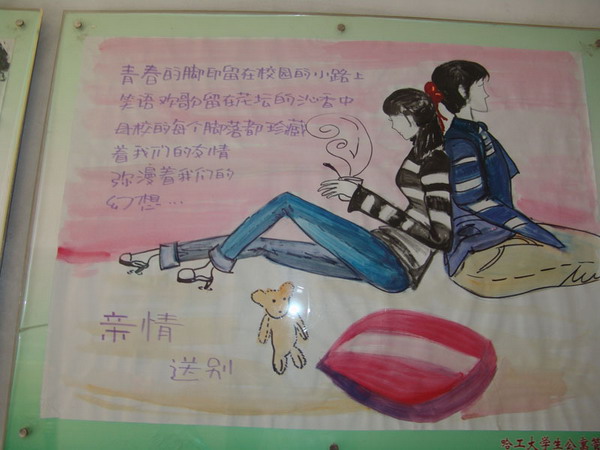 青春的脚印留在校园的小路上
笑语欢歌留在花坛的沁香中
母校的每个脚落都珍藏
着我们的友情
弥漫着我们的
幻想...
亲情
送别
哈工大学生公寓管